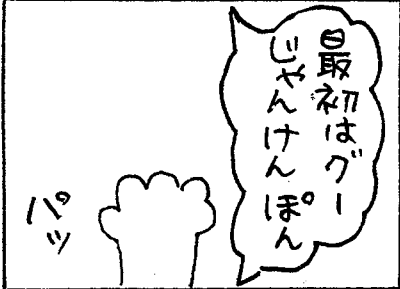 最初はグー
じゃんけんぽん
パッ